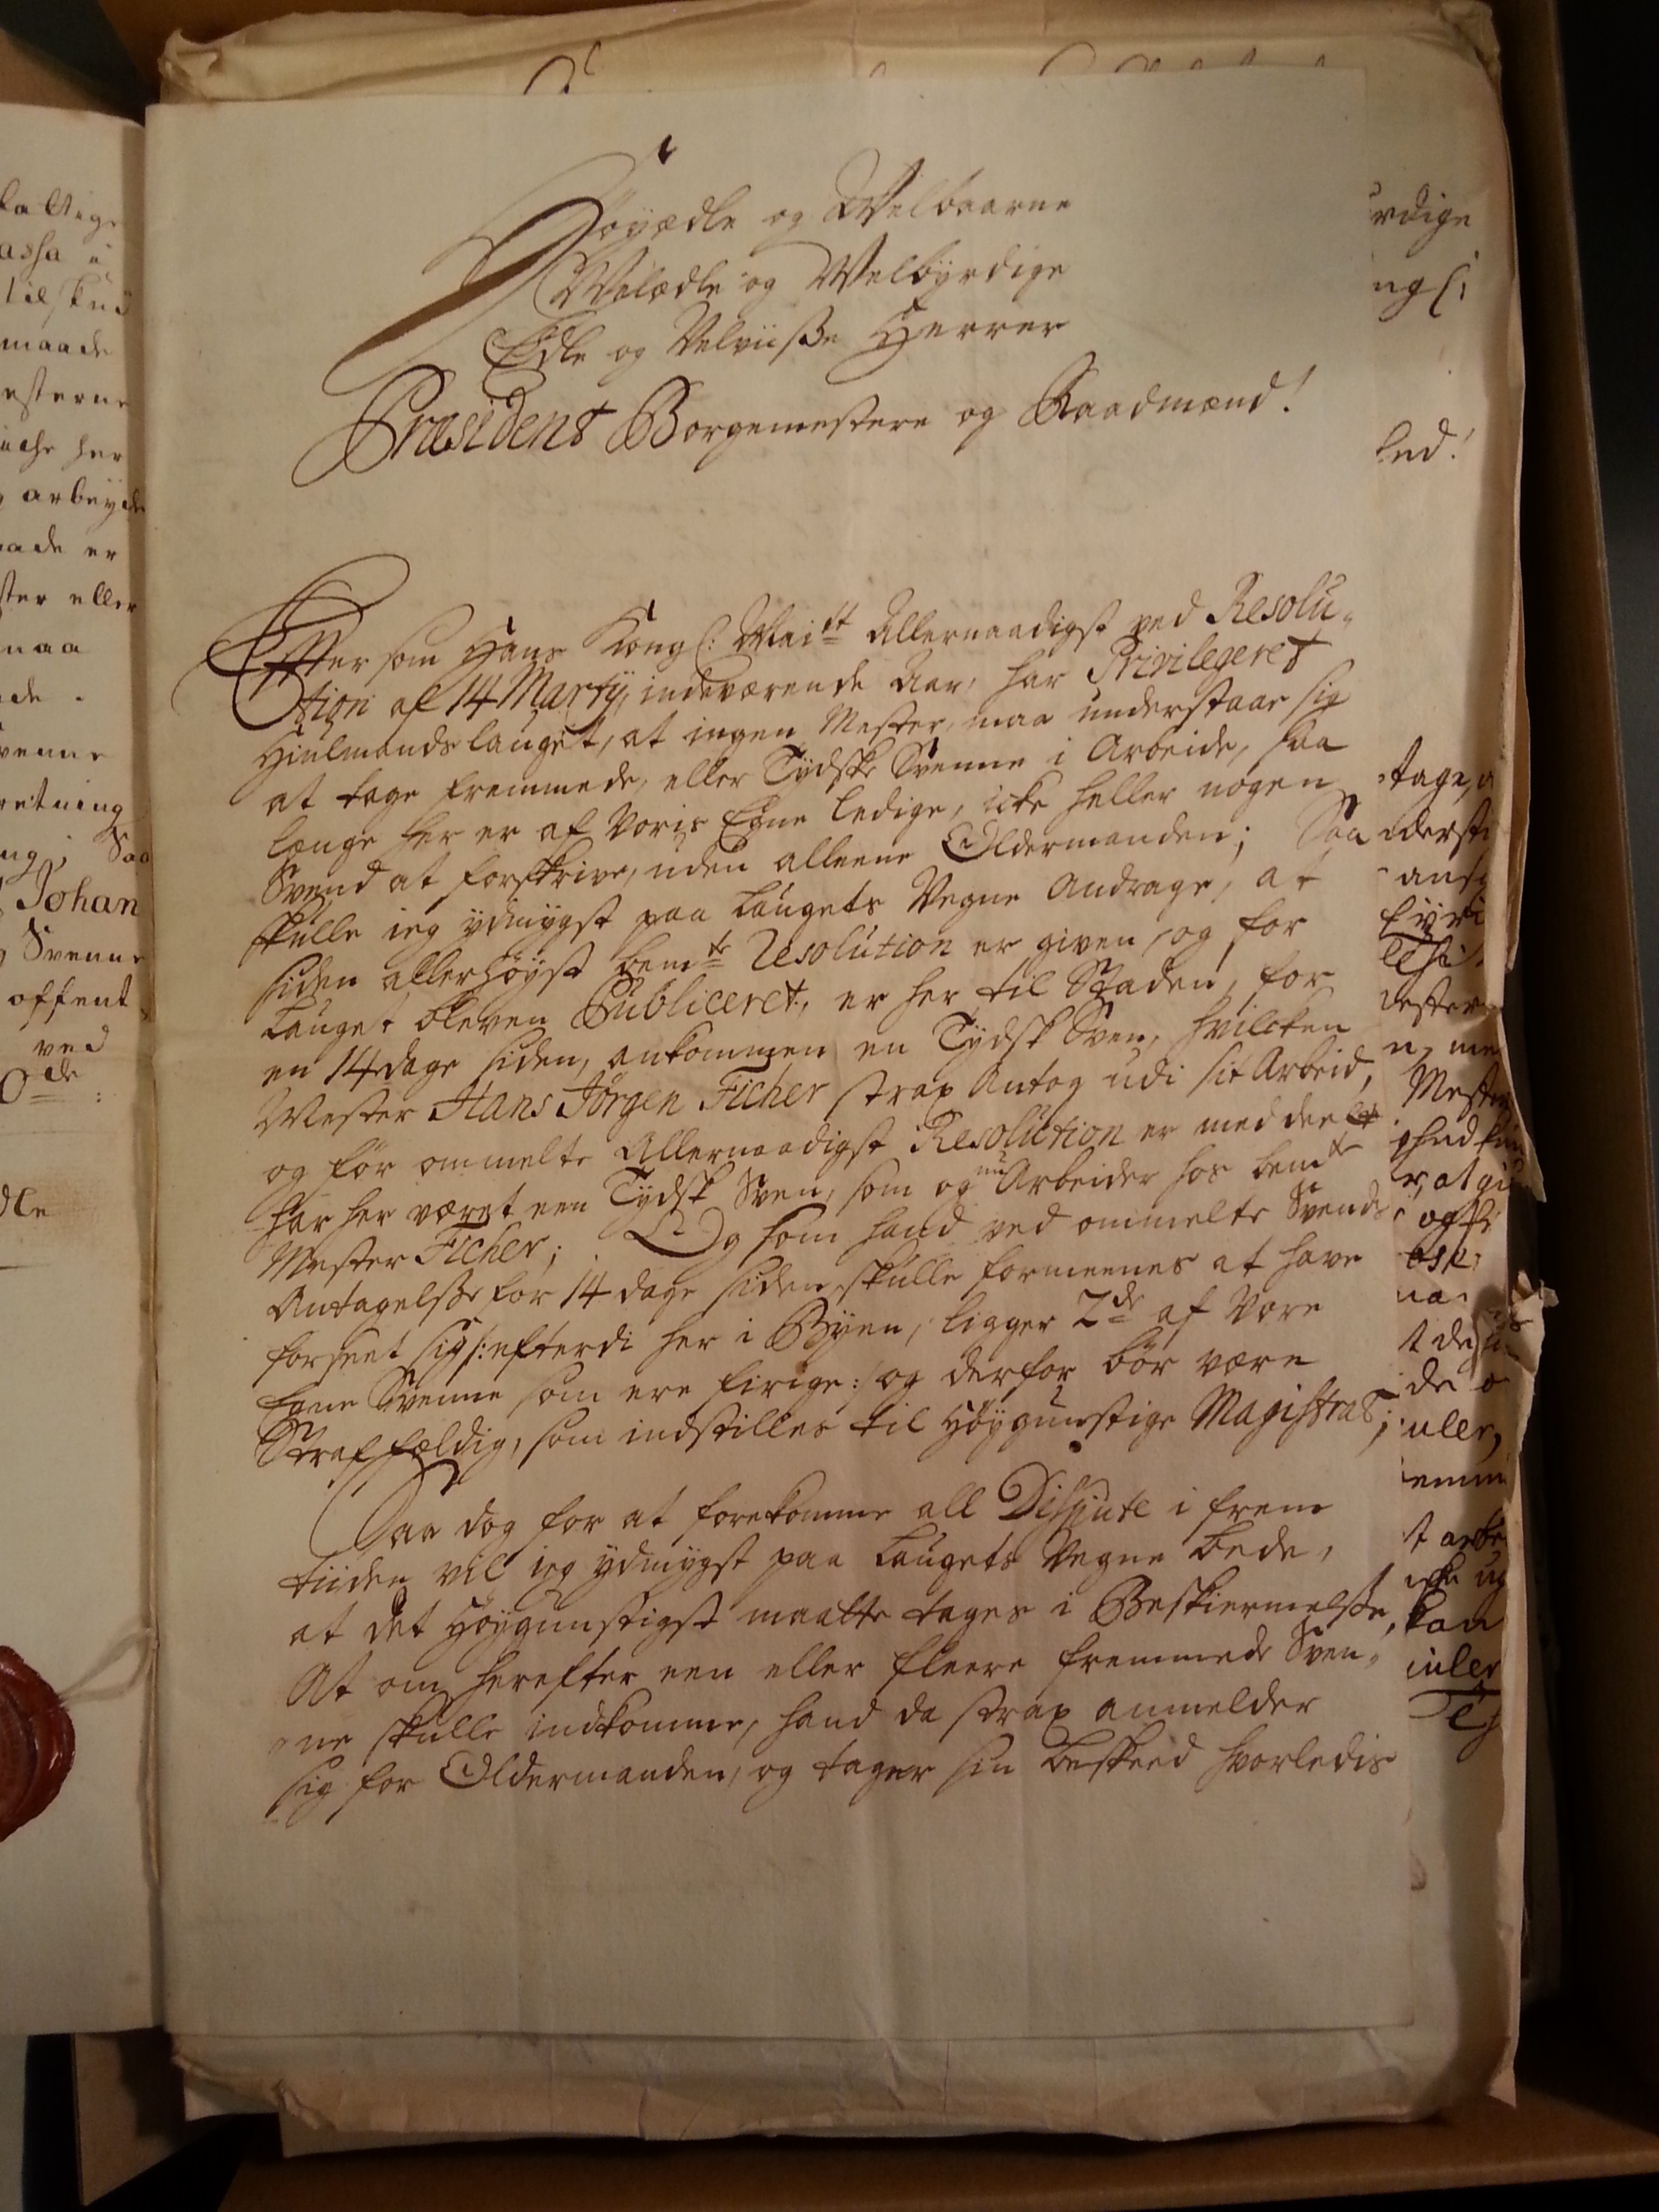 Höyædle og Welbaarne
Welædle og Welbyrdige
Edle og Velviisse Herrer
Præsident Borgemestere og Raadmænd!
Efter som Hans Kongl: Mai<sup>tt</sup> Allernaadigst ved Resolu-
tion af 14 Marty, indeværende Aar, har Privilegeret
Hiulmands lauget, at ingen Mester, maa understaar sig
at tage fremmede, eller Tydske Svenne i Arbeide, saa
længe her er af Voris Egne ledige, icke heller nogen
Svend at forskrive, uden alleene Oldermanden; Saa
skulle ieg ydmygst paa Laugets Vegne Andrage, at
siden allerhöyst bem<sup>te</sup> Resolution er given, og for
Lauget bleven Publiceret, er her til Staden, for
en 14 dage siden, ankommen en Tydsk Sven, hvilcken
Mester Hans Jörgen Ficher strax Antog udi sit Arbeid,
og för ommelte Allernaadigst Resolution er meddeelet
har her været een Tydsk Sven, som og nu Arbeider hos bem<sup>te</sup>
Mester Ficher; Og som hand ved ommelte Svends
Antagelsse for 14 dage siden, skulle formeenes at have
forseet sig /: efterdi her i Byen, ligger 2<sup>de</sup> af Vore
Egne Svenne som ere firige :/ og derfor bör være
Straffældig, som indstilles til Höygunstige Magistrat;
Saa dog for at forekomme all Dispute i frem
tiiden vil ieg ydmygst paa Laugets Vegne bede,
at det Höygunstigst maatte tages i Beskiermelsse,
At om herefter een eller fleere fremmede Sven-
ne skulle indkomme, hand da strax anmelder
sig for Oldermanden, og tager sin beskeed hvorledis